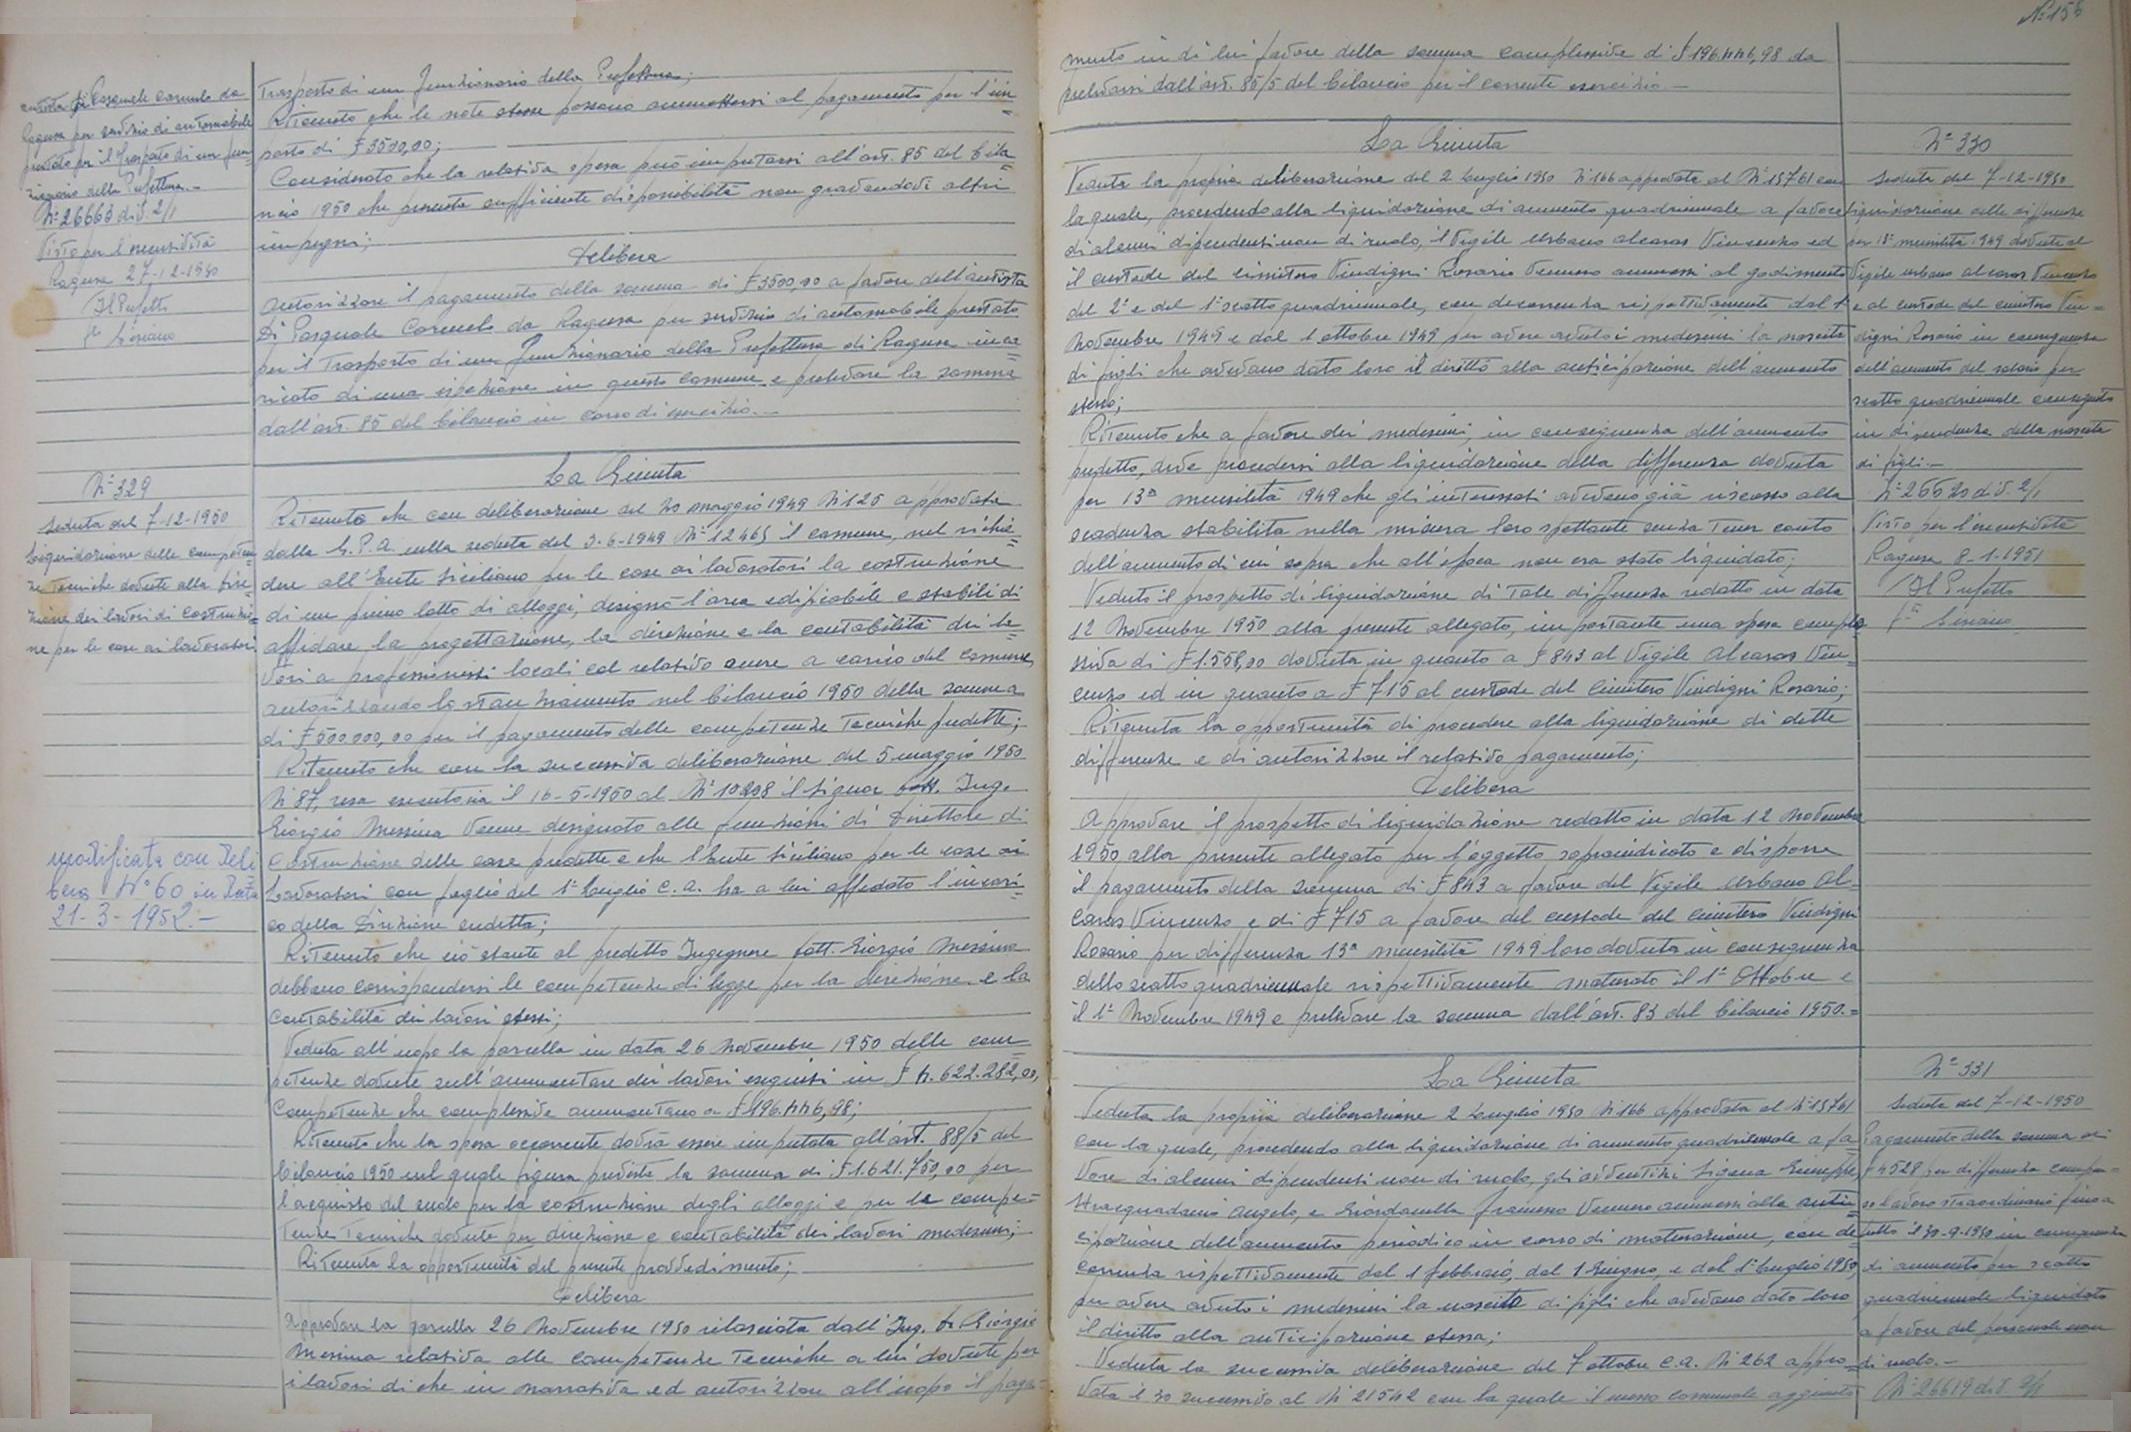 autista Di Pasquale Carmelo da
Ragusa per servizio di automobile
prestato per il trasporto di un fun=
zionario della Prefettura.-
N° 26663 di V. 2/1
Visto per l'esecutività
Ragusa 27-12-1950
Il Prefetto
Trasporto di un funzionario della Prefettura;
Ritenuto che le note stesse possano ammettersi al pagamento per l'im=
porto di £ 3500,00;
Considerato che la relativa spesa può imputarsi all'art. 85 del bila=
ncio 1950 che presenta sufficiente disponibilità non gravandovi altri
impegni;
Delibera
Autorizzare il pagamento della somma di £ 3500,00 a favore dell'autista
Di Pasquale Carmelo da Ragusa per servizio di automobile prestato
per il trasporto di un funzionario della Prefettura di Ragusa inca=
ricato di una ispezione in questo Comune e prelevare la somma
dall'art. 85 del bilancio in corso di esercizio.-
N° 329
Seduta del 7-12-1950
Liquidazione delle competen=
ze tecniche dovute alla dire=
zione dei lavori di costruzio=
ne per le case ai lavoratori
modificata con deli
bera N° 60 in data
21-3-1952.-
La Giunta
Ritenuto che con deliberazione del 20 maggio 1949 N° 125 approvata
dalla G.P.A. nella seduta del 3-6-1949 N° 12465 il Comune, nel richie=
dere all'Ente Siciliano per le case ai lavoratori la costruzione
di un primo lotto di alloggi, designò l'area edificabile e stabilì di
affidare la progettazione, la direzione e la contabilità dei la=
vori a professionisti locali col relativo onere a carico del Comune,
autorizzando lo stanziamento nel bilancio 1950 della somma
di £ 500.000,00 per il pagamento delle competenze tecniche predette;
Ritenuto che con la successiva deliberazione del 5 maggio 1950
N° 87, resa esecutoria il 16-5-1950 al N° 10208 il Signor Dott. Ing.
Giorgio Messina venne designato alle funzioni di Direttore di
Costruzione delle case predette e che l'Ente Siciliano per le case ai
Lavoratori con foglio del 1° Luglio c.a. ha a lui affidato l'incari=
co della Direzione cudetta;
Ritenuto che ciò stante al predetto Ingegnere Dott. Giorgio Messina
debbano corrispondersi le competenze di legge per la direzione e la
contabilità dei lavori stessi;
Veduta all'uopo la parcella in data 26 Novembre 1950 delle com=
petenze dovute sull'ammontare dei lavori eseguiti in £ 4.622.282,00,
competenze che complessive ammontano a £ 196.446,98;
Ritenuto che la spesa occorrente dovrà essere imputata all'art. 88/5 del
bilancio 1950 nel quale figura prevista la somma di £ 1.621.750,00 per
l'acquisto del suolo per la costruzione degli alloggi e per le compe=
tenze tecniche dovute per direzione e contabilità dei lavori medesimi;
Ritenuta la opportunità del presente provvedimento;
Delibera
Approvare la parcella 26 Novembre 1950 rilasciata dall'Ing. Dr Giorgio
Messina relativa alle competenze tecniche a lui dovute per
i lavori di che in narrativa ed autorizzare all'uopo il paga=
N° 156
mento in di lui favore della somma complessiva di £ 196.446,98 da
prelevarsi dall'art. 85/5 del bilancio per il corrente esercizio.-
La Giunta
Veduta la propria deliberazione del 2 luglio 1950 N° 166 approvata al N° 15761 con
la quale, procedendo alla liquidazione di aumento quadriennale a favore
di alcuni dipendenti non di ruolo, il Vigile Urbano Alcaras Vincenzo ed
il custode del cimitero Vindigni Rosario vennero ammessi al godimento
del 2° e del 1° scatto quadriennale, con decorrenza rispettivamente dal 1
Novembre 1949 e dal 1 ottobre 1949 per avere avuto i medesimi la nascita
di figli che avevano dato loro il diritto alla anticipazione dell'aumento
stesso;
Ritenuto che a favore dei medesimi, in conseguenza dell'aumento
predetto, deve procedersi alla liquidazione della differenza dovuta
per 13ª mensilità 1949 che gli interessati avevano già riscosso alla
scadenza stabilita nella misura loro spettante senza tener conto
dell'aumento di cui sopra che all'epoca non era stato liquidato;
Veduto il prospetto di liquidazione di tale differenza redatto in data
12 Novembre 1950 alla presente allegato, importante una spesa comples
siva di £ 1.558,00 dovuta in quanto a £ 843 al Vigile Alcaras Vin=
cenzo ed in quanto a £ 715 al custode del Cimitero Vindigni Rosario;
Ritenuta la opportunità di procedere alla liquidazione di dette
differenze e di autorizzare il relativo pagamento;
Delibera
Approvare il prospetto di liquidazione redatto in data 12 Novembre
1950 alla presente allegato per l'oggetto sopraindicato e disporre
il pagamento della somma di £ 843 a favore del Vigile Urbano Al=
caras Vincenzo e di £ 715 a favore del custode del cimitero Vindigni
Rosario per differenza 13ª mensilità 1949 loro dovuta in conseguenza
dello scatto quadriennale rispettivamente maturato il 1° Ottobre e
il 1° Novembre 1949 e prelevare la somma dall'art. 83 del bilancio 1950.=
N° 330
Seduta del 7-12-1950
Liquidazione delle differenze
per 13ª mensilità 1949 dovute al
Vigile urbano Alcaras Vincenzo
e al custode del cimitero Vin=
digni Rosario in conseguenza
dell'aumento del salario per
scatto quadriennale conseguito
in dipendenza della nascita
di figli.-
N° 26620 di V. 2/1
Visto per l'esecutività
Ragusa 8-1-1951
Il Prefetto
La Giunta
Veduta la propria deliberazione 2 Luglio 1950 N° 166 approvata al N° 15761
con la quale, procedendo alla liquidazione di aumento quadriennale a fa
vore di alcuni dipendenti non di ruolo, gli avventizi Sigona Giuseppe,
Stracquadanio Angelo, e Giordanella Francesco vennero ammessi alla anti=
cipazione dell'aumento periodico in corso di maturazione, con de
correnza rispettivamente dal 1 febbraio, dal 1 Giugno, e dal 1° Luglio 1950,
per avere avuto i medesimi la nascita di figli che avevano dato loro
il diritto alla anticipazione stessa;
Veduta la successiva deliberazione del 7 ottobre c.a. N° 262 appro=
vata il 30 successivo al N° 21542 con la quale il messo comunale aggiunto
N° 331
Seduta del 7-12-1950
Pagamento della somma di
£ 4528 per differenza compen=
so lavoro straordinario fino a
tutto il 30-9-1950 in conseguenza
di aumento per scatto
quadriennale liquidato
a favore del personale non
di ruolo.-
N° 26619 di V. 2/1